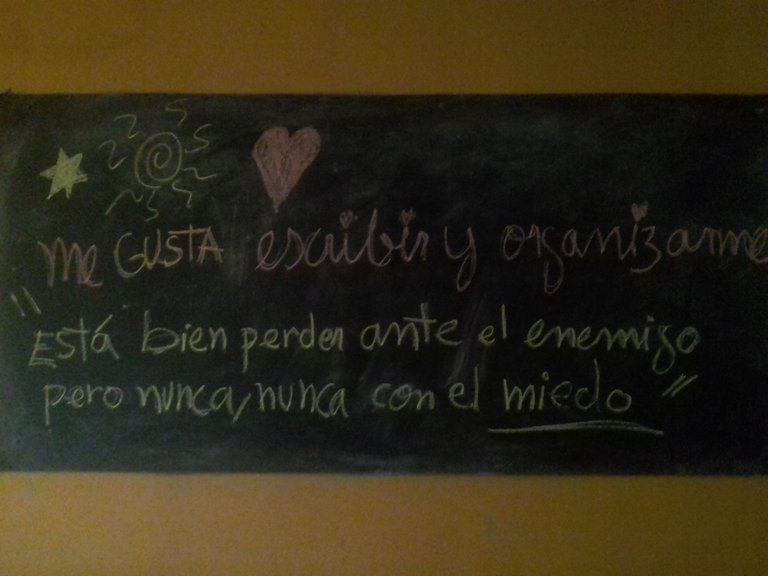 me GUSTA escribir y organizarme
"Está bien perder ante el enemigo
pero nunca, nunca con el miedo"